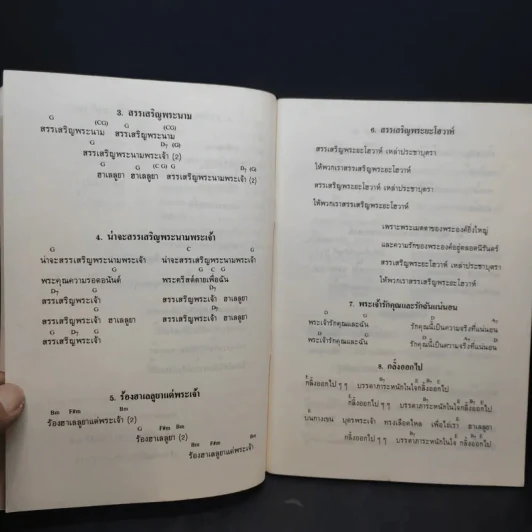 3. สรรเสริญพระนาม
G (CG) (CG)
สรรเสริญพระนาม สรรเสริญพระนาม
G D7 (G)
สรรเสริญพระนามพระเจ้า (2)
G (C G) G D7 (G)
ฮาเลลูยา ฮาเลลูยา สรรเสริญพระนามพระเจ้า (2)
4. น่าจะสรรเสริญพระนามพระเจ้า
G C G
น่าจะสรรเสริญพระนามพระเจ้า น่าจะสรรเสริญพระนามพระเจ้า
G C G
พระคุณความรอดอนันต์ พระคริสต์ตายเพื่อฉัน
D7 G D7
สรรเสริญพระเจ้า สรรเสริญพระเจ้า ฮาเลลูยา
G D7
สรรเสริญพระเจ้า ฮาเลลูยา สรรเสริญพระเจ้า ฮาเลลูยา
G D7 G
สรรเสริญพระเจ้า
5. ร้องฮาเลลูยาแด่พระเจ้า
Bm F#m Bm
ร้องฮาเลลูยาแด่พระเจ้า (2)
G F#m Bm
ร้องฮาเลลูยา (2)
Bm F#m Bm
ร้องฮาเลลูยาแด่พระเจ้า
6. สรรเสริญพระยะโฮวาห์
สรรเสริญพระยะโฮวาห์ เหล่าประชาบุตรา
ให้พวกเราสรรเสริญพระยะโฮวาห์
สรรเสริญพระยะโฮวาห์ เหล่าประชาบุตรา
ให้พวกเราสรรเสริญพระยะโฮวาห์
เพราะพระเมตตาของพระองค์ยิ่งใหญ่
และความรักของพระองค์อยู่ตลอดนิรันดร์
สรรเสริญพระยะโฮวาห์ เหล่าประชาบุตรา
ให้พวกเราสรรเสริญพระยะโฮวาห์
7. พระเจ้ารักคุณและรักฉันแน่นอน
D G D A7
พระเจ้ารักคุณและฉัน รักคุณนี้เป็นความจริงที่แน่นอน
D G D A7 D
พระเจ้ารักคุณและฉัน รักคุณนี้เป็นความจริงที่แน่นอน
8. กลิ้งออกไป
E B7 E
กลิ้งออกไป ๆ ๆ บรรดาภาระหนักในใจกลิ้งออกไป
E B7 E
กลิ้งออกไป ๆ ๆ บรรดาภาระหนักในใจกลิ้งออกไป
บนกางเขน บุตรพระเจ้า ทรงเลือดไหล เพื่อไถ่เรา ฮาเลลูยา
B7 E
กลิ้งออกไป ๆ ๆ บรรดาภาระหนักในใจกลิ้งออกไป